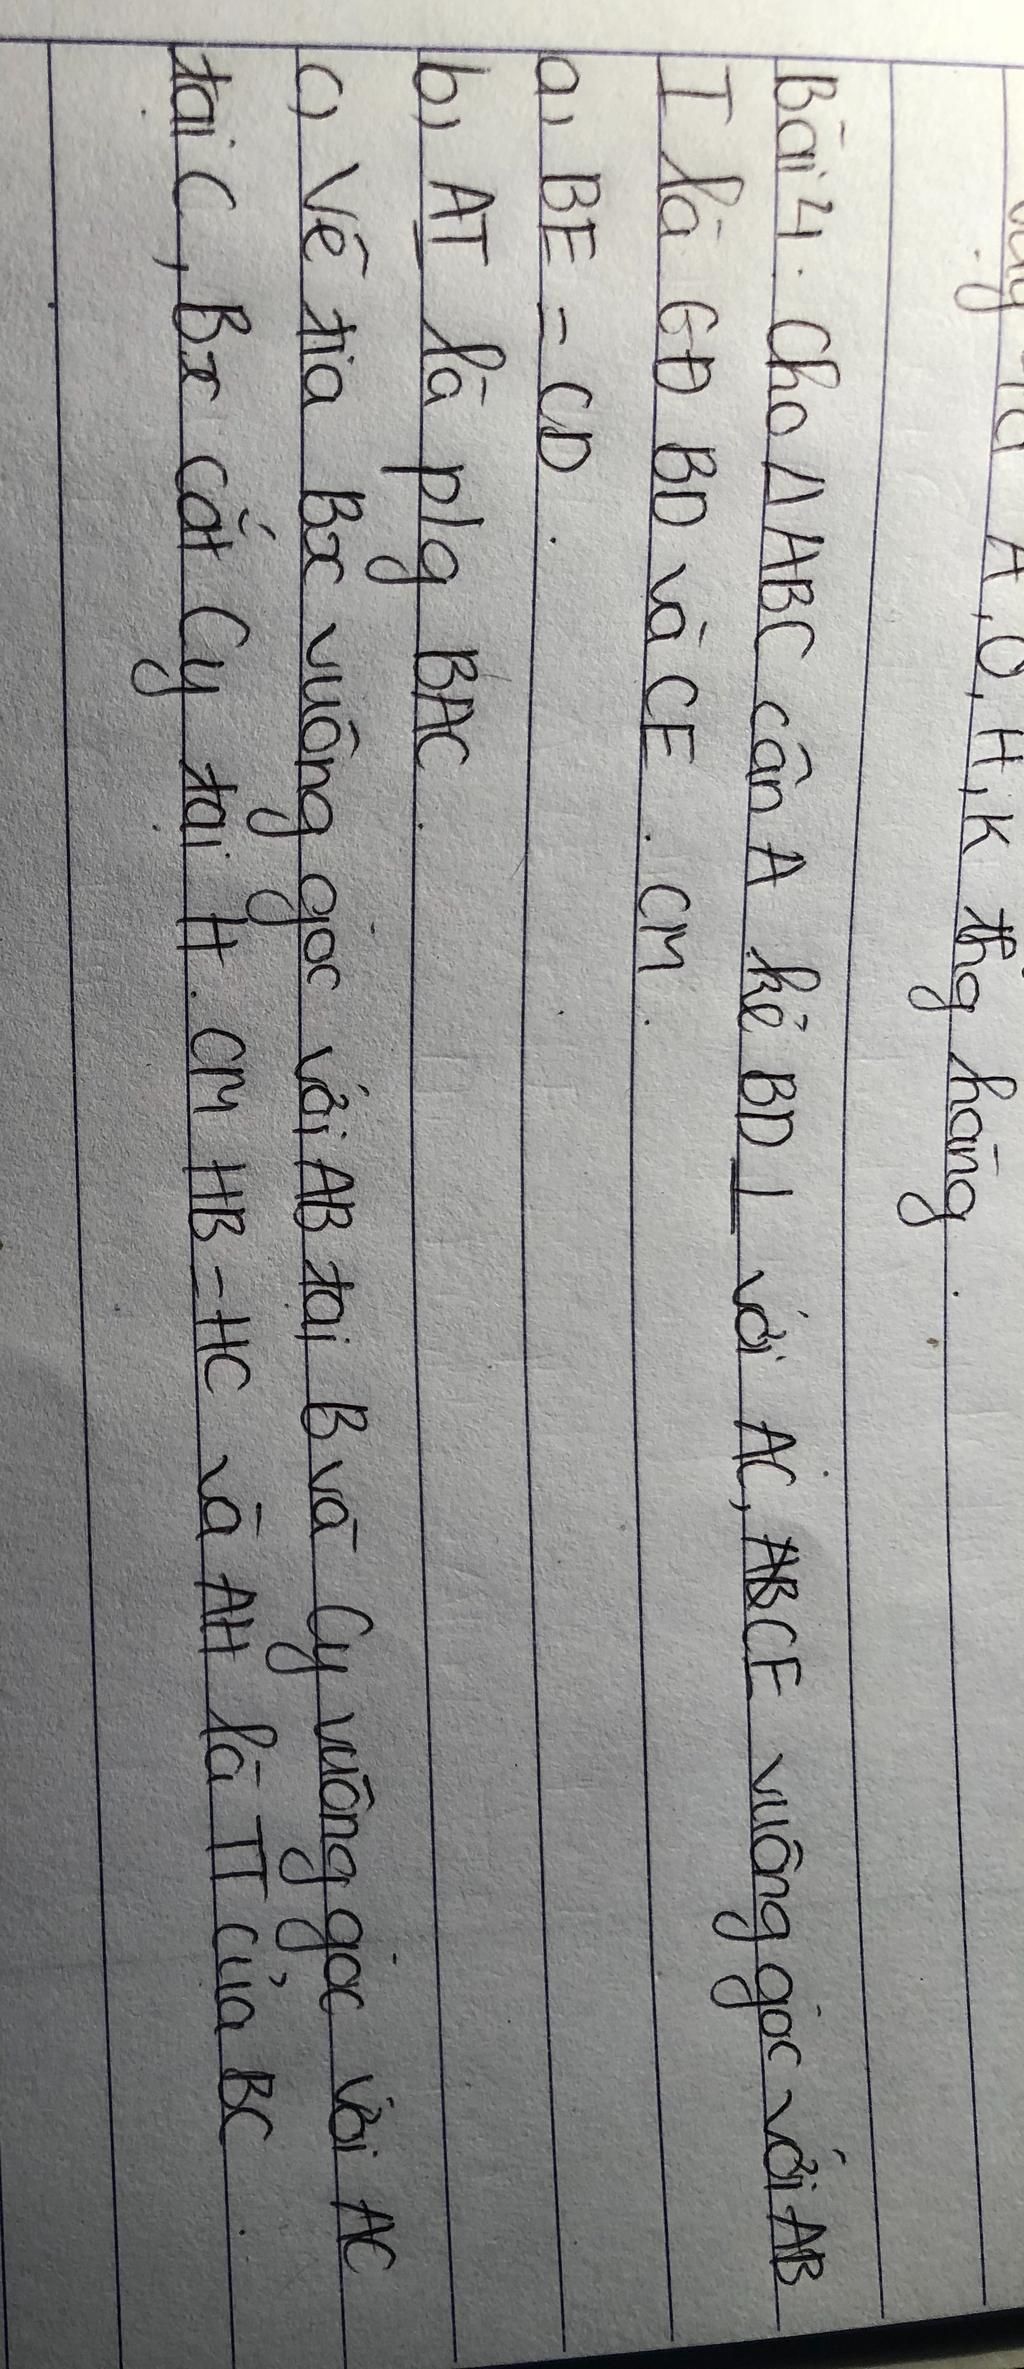 A, O, H, K thg hàng.
Bài 4. Cho Δ ABC cân A kẻ BD ⊥ với AC, CE vuông góc với AB
I là GĐ BD và CE. CM.
a, BE = CD.
b, AI là p/g BAC.
c, Vẽ tia Bx vuông góc với AB tại B và Cy vuông góc với AC
tại C, Bx cắt Cy tại H. CM HB = HC và AH là TT của BC.